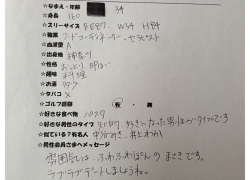 ☆なまえ・年齢 34
☆身長 160
☆スリーサイズ B W59 H84
☆職業 フードコーディネーター、セラピスト
☆血液型 A
☆出身地 神奈川
☆性格 おっとり、明るい
☆趣味 料理
☆お酒
☆タバコ ×
☆ゴルフ経験 有・無
☆好きな食べ物 パスタ
☆好きな男性のタイプ 好きになった男性がタイプです
☆似ている?有名人 中谷みき、井上わか
☆男性会員さまへメッセージ
雰囲気は、ふわふわぽんの まさきです。
ラブラブデートしましょうね。